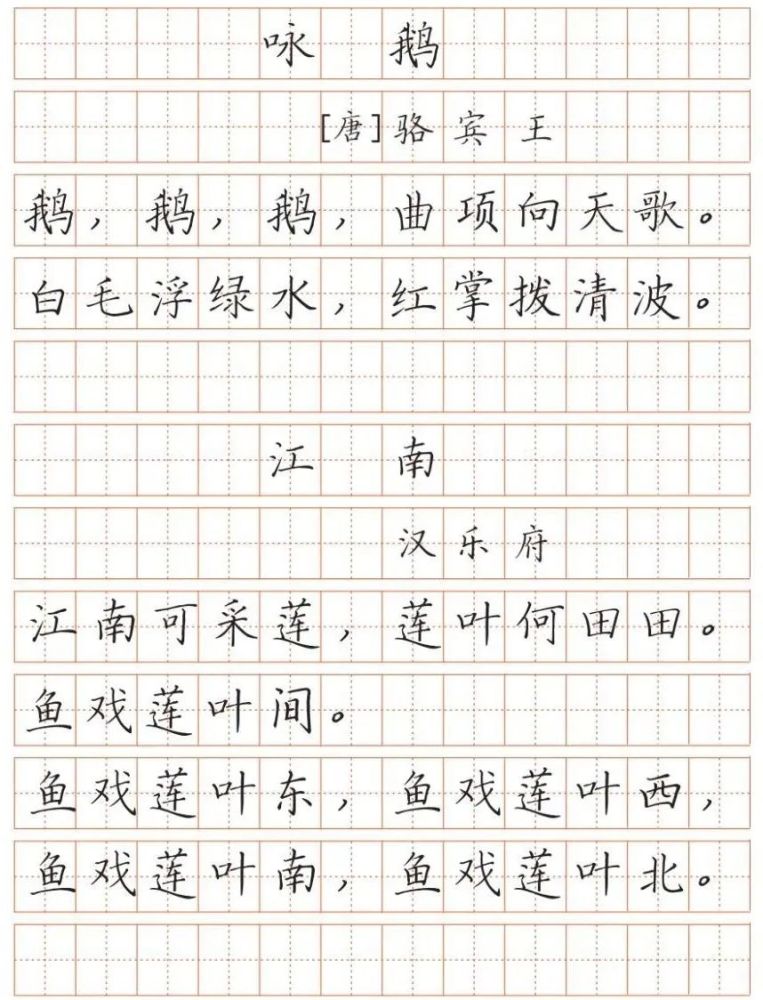 咏鹅
[唐]骆宾王
鹅，鹅，鹅，曲项向天歌。
白毛浮绿水，红掌拨清波。
江南
汉乐府
江南可采莲，莲叶何田田。
鱼戏莲叶间。
鱼戏莲叶东，鱼戏莲叶西，
鱼戏莲叶南，鱼戏莲叶北。